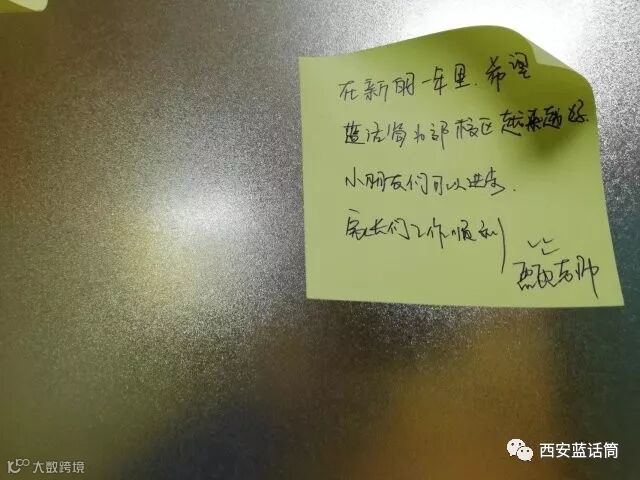 在新的一年里，希望
蓝话筒为部校区越来越好
小朋友们可以进步，
家长们工作顺利
老师
西安蓝话筒
大数跨境